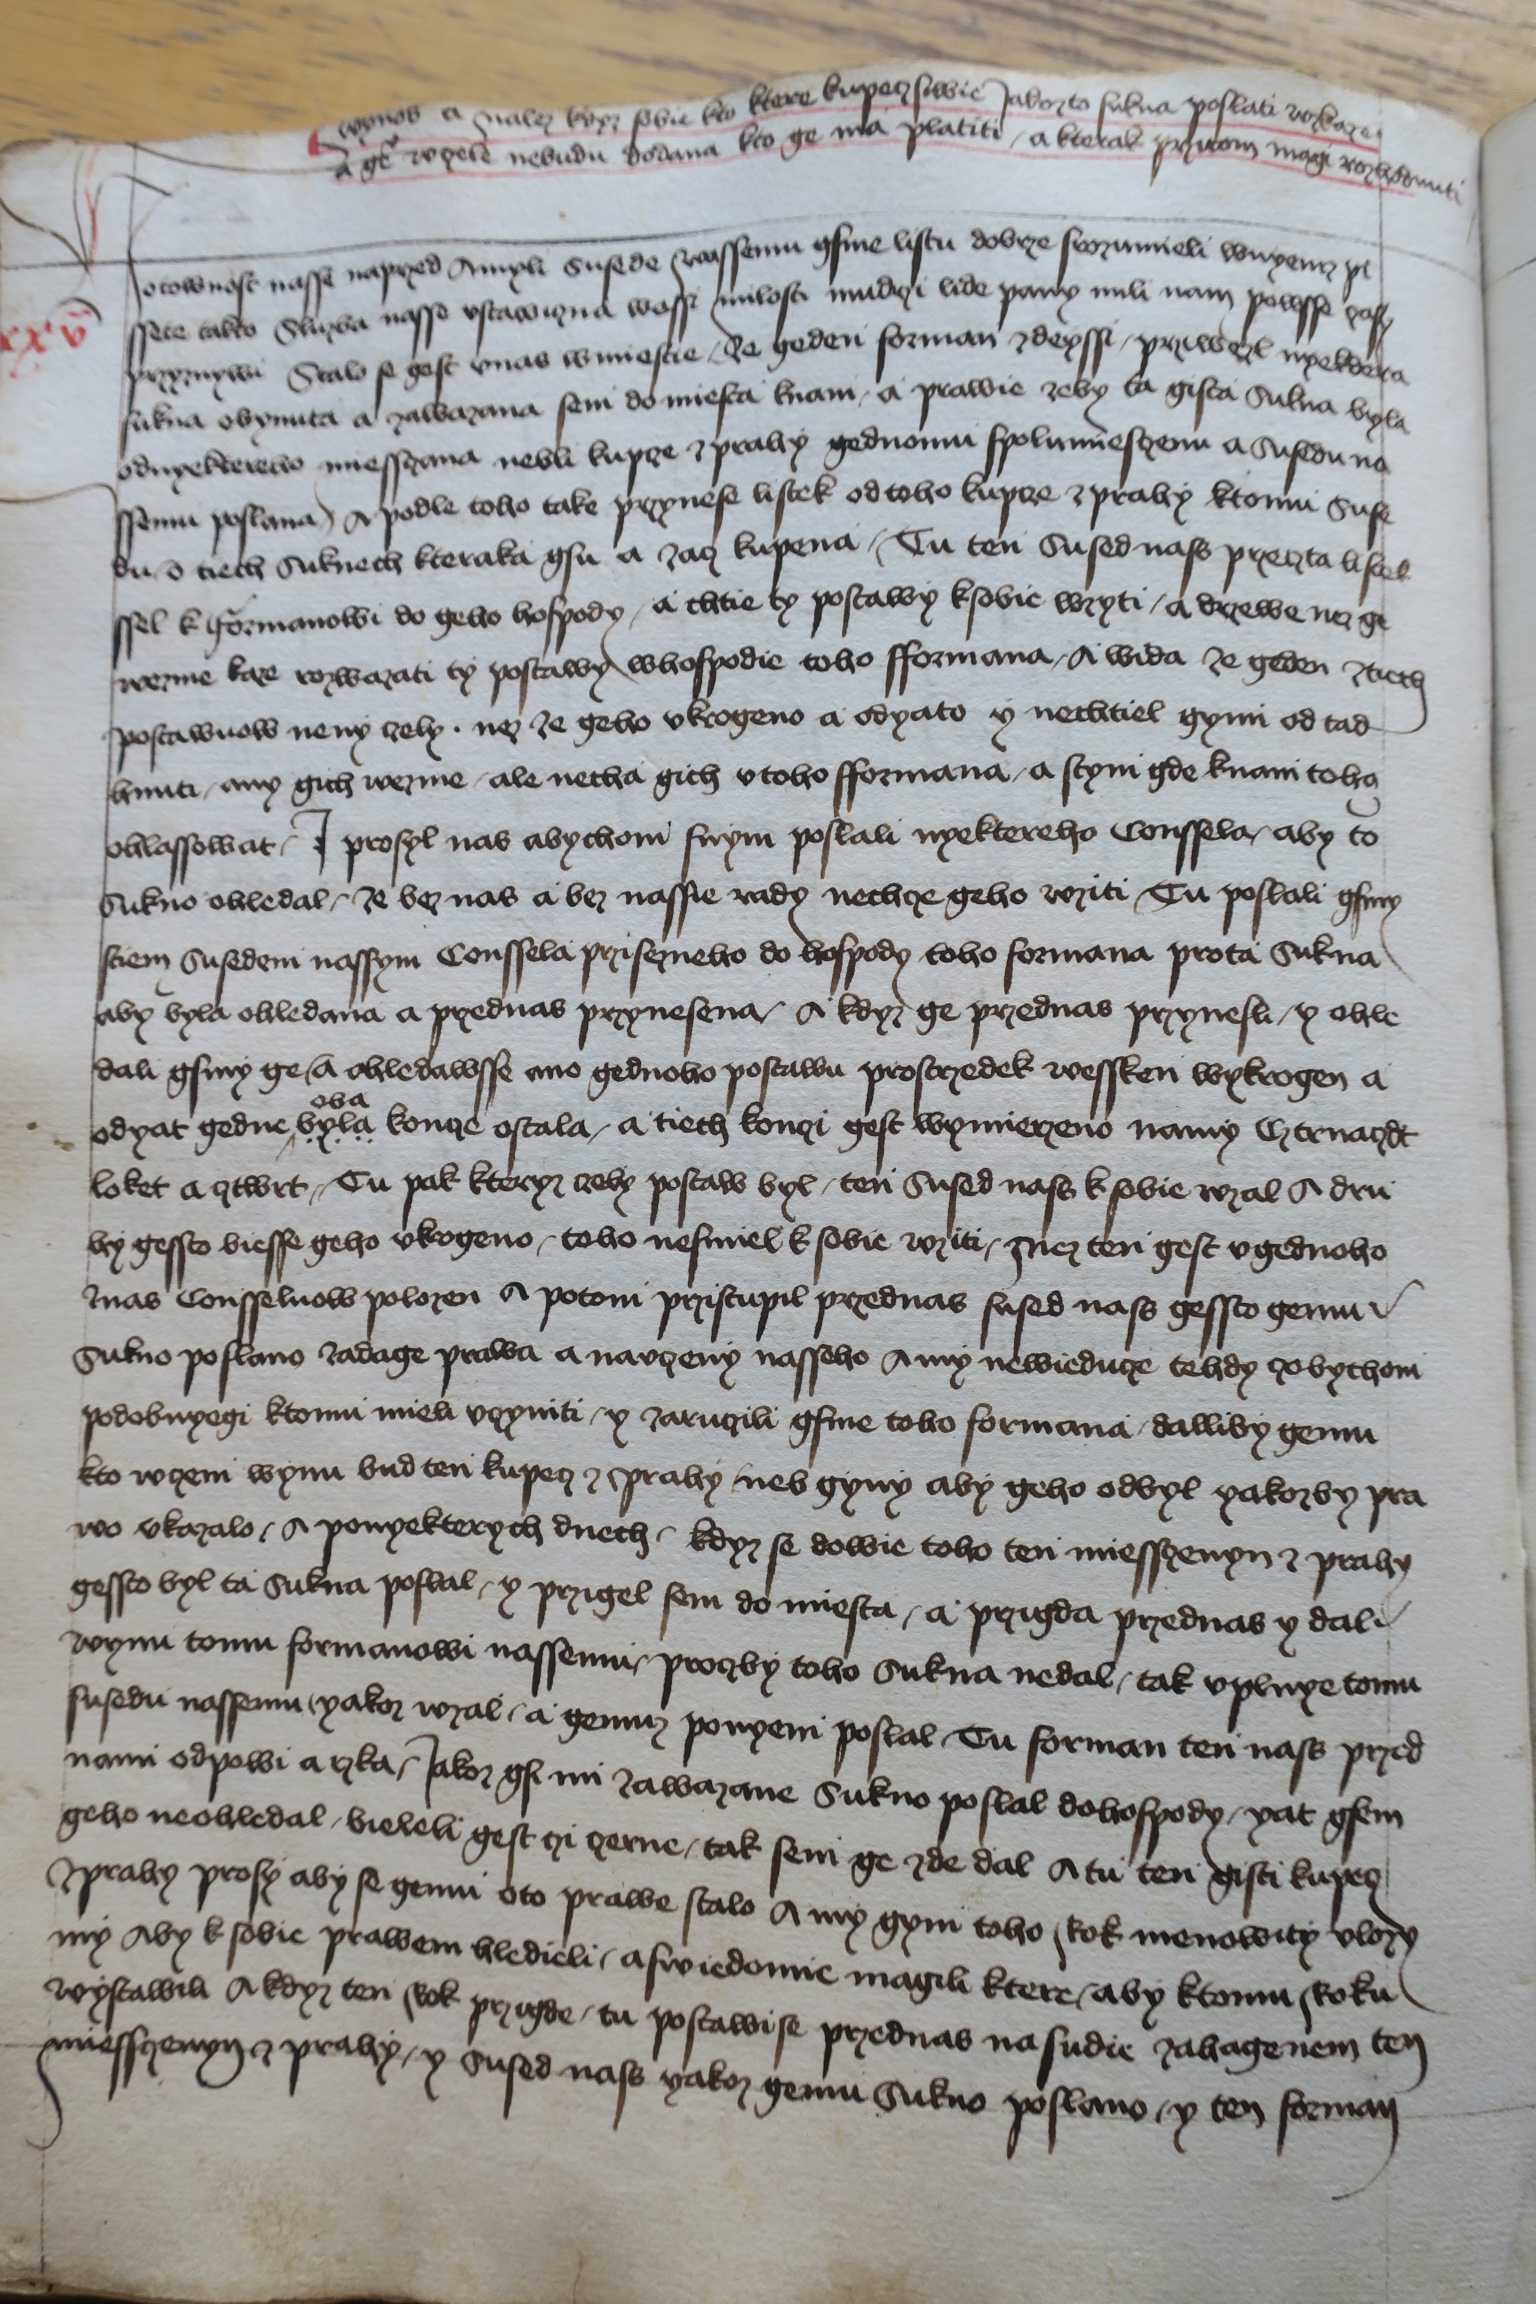 wynos a nalez kdyz sobie kto ktere kupeczstwie jakozto sukna poslati rozkaze
A gt wczele nebudu dodana kto ge ma platiti / a kterak przitom magi rozhodnuti
xxv
otownost nasse naprzed Amyli Susede Wassemu gsme listu dobrze srozumieli wnyemz pi
ssete takto Sluzba nasse vstawiczna wassi milosti mudrzi lide pany mili nam powsse czasy
przyznywi Stalo se gest vnas wmiestie / Ze geden forman zdeyssi / przywezl nyektera
sukna obynuta a zawazana sem do miesta knam / a prawie zeby ta gista Sukna byla
odnyektereho miessczana nebli kupcze z prahy gednomu spolumiesczenu a Susedu na
ssemu poslana / A podle toho take przynese listek od toho kupcze z prahy ktomu Suse
du o tiech Suknech kteraka gsu a zacz kupena / Tu ten Sused nass przeczta listek
ssel k fformanowi do geho hospody / a chtie ty postawy ksobie wzyti / a drzewe nez ge
wezme kaze rozwazati ty postawy whospodie toho fformana / A wida ze geden ztiech
postawuow neny czely . nez ze geho vkrogeno a odyato y nechtiel gymi od tad
hnuti / any gich wezme / ale necha gich vtoho fformana / a stym gde knam toho
ohlassowat / I prosyl nas abychom snym poslali nyektereho Conssela / aby to
Sukno ohledal / ze bez nas a bez nassie rady nechcze geho wziti / Tu poslali gsmy
stiem Susedem nassym Conssela przisezneho do hospody toho formana prota Sukna
aby byla ohledana a przednas przynesena / A kdyz ge przednas przynesli / y ohle
dali gsmy ge / a ohledawsse ano gednoho postawu prostrzedek wessken wykrogen a
oba
odyat gedne byla koncze ostala / a tiech konczi gest wymierzeno namy Cztrnaczdt
loket a cztwrt / Tu pak kteryz czely postaw byl / ten Sused nass k sobie wzal A dru
hy gessto biesse geho vkrogeno / toho nesmiel k sobie wziti / nez ten gest vgednoho
znas Consseluow polozen A potom przistupil przednas sused nass gessto gemu
Sukno poslano zadage prawa a nauczeny nasseho A my newieducze tehdy czobychom
podobnyegi ktomu mieli vczyniti / y zaruczili gsme toho formana / dalliby gemu
kto wczem wynu bud ten kupecz z prahy / neb gyny aby geho odbyl yakozby pra
wo vkazalo / A ponyekterych dnech / kdyz se dowie toho ten miessczenyn z prahy
gessto byl ta Sukna poslal / y przigel sem do miesta / a przigda przednas y dal
wynu tomu formanowi nassemu / proczby toho Sukna nedal / tak vplnye tomu
susedu nassemu / yakoz wzal / a gemuz ponyem poslal / Tu forman ten nass przed
nami odpowi a rzka / Jakoz gsi mi zawazane Sukno poslal dohospody / yat gsem
geho neohledal / bieleli gest czi czerne / tak sem ge zde dal A tu ten gisti kupecz
z prahy prosy aby se gemu oto prawe stalo A my gym toho Rok menowity vlozy
my Aby k sobie prawem hledieli / a swiedomie magili ktere / aby ktomu Roku
wystawili A kdyz ten Rok przigde / tu postawise przednas na sudie zahagenem ten
miessczenyn z prahy / y Sused nass yakoz gemu Sukno poslano / y ten forman